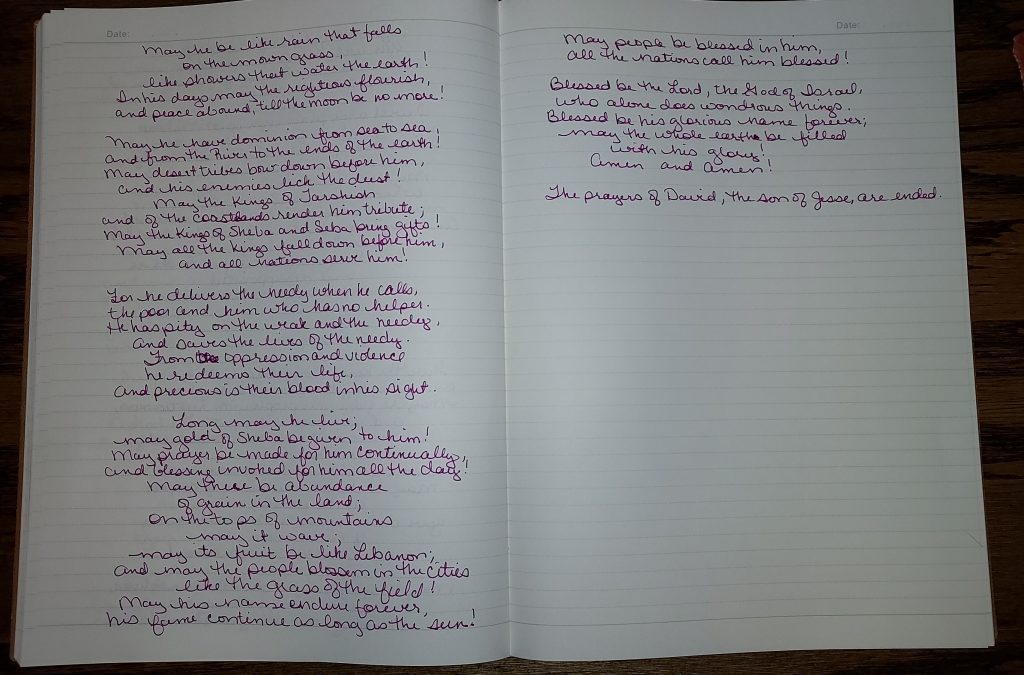 Date:
May he be like rain that falls
on the mown grass,
like showers that water the earth!
In his days may the righteous flourish,
and peace abound, till the moon be no more!
May he have dominion from sea to sea,
and from the River to the ends of the earth!
May desert tribes bow down before him,
and his enemies lick the dust!
May the Kings of Tarshish
and of the coastlands render him tribute;
May the Kings of Sheba and Seba bring gifts!
May all the Kings fall down before him,
and all nations serve him!
For he delivers the needy when he calls,
the poor and him who has no helper.
He has pity on the weak and the needy,
and saves the lives of the needy.
From oppression and violence
he redeems their life,
and precious is their blood in his sight.
Long may he live;
may gold of Sheba be given to him!
May prayer be made for him continually,
and blessing invoked for him all the day!
May there be abundance
of grain in the land;
on the tops of mountains
may it wave;
may its fruit be like Lebanon;
and may the people blossom in the cities
like the grass of the field!
May his name endure forever,
his fame continue as long as the sun!
Date:
May people be blessed in him,
all the nations call him blessed!
Blessed be the Lord, the God of Israel,
who alone does wondrous things.
Blessed be his glorious name forever;
may the whole earth be filled
with his glory!
Amen and Amen!
The prayers of David, the son of Jesse, are ended.